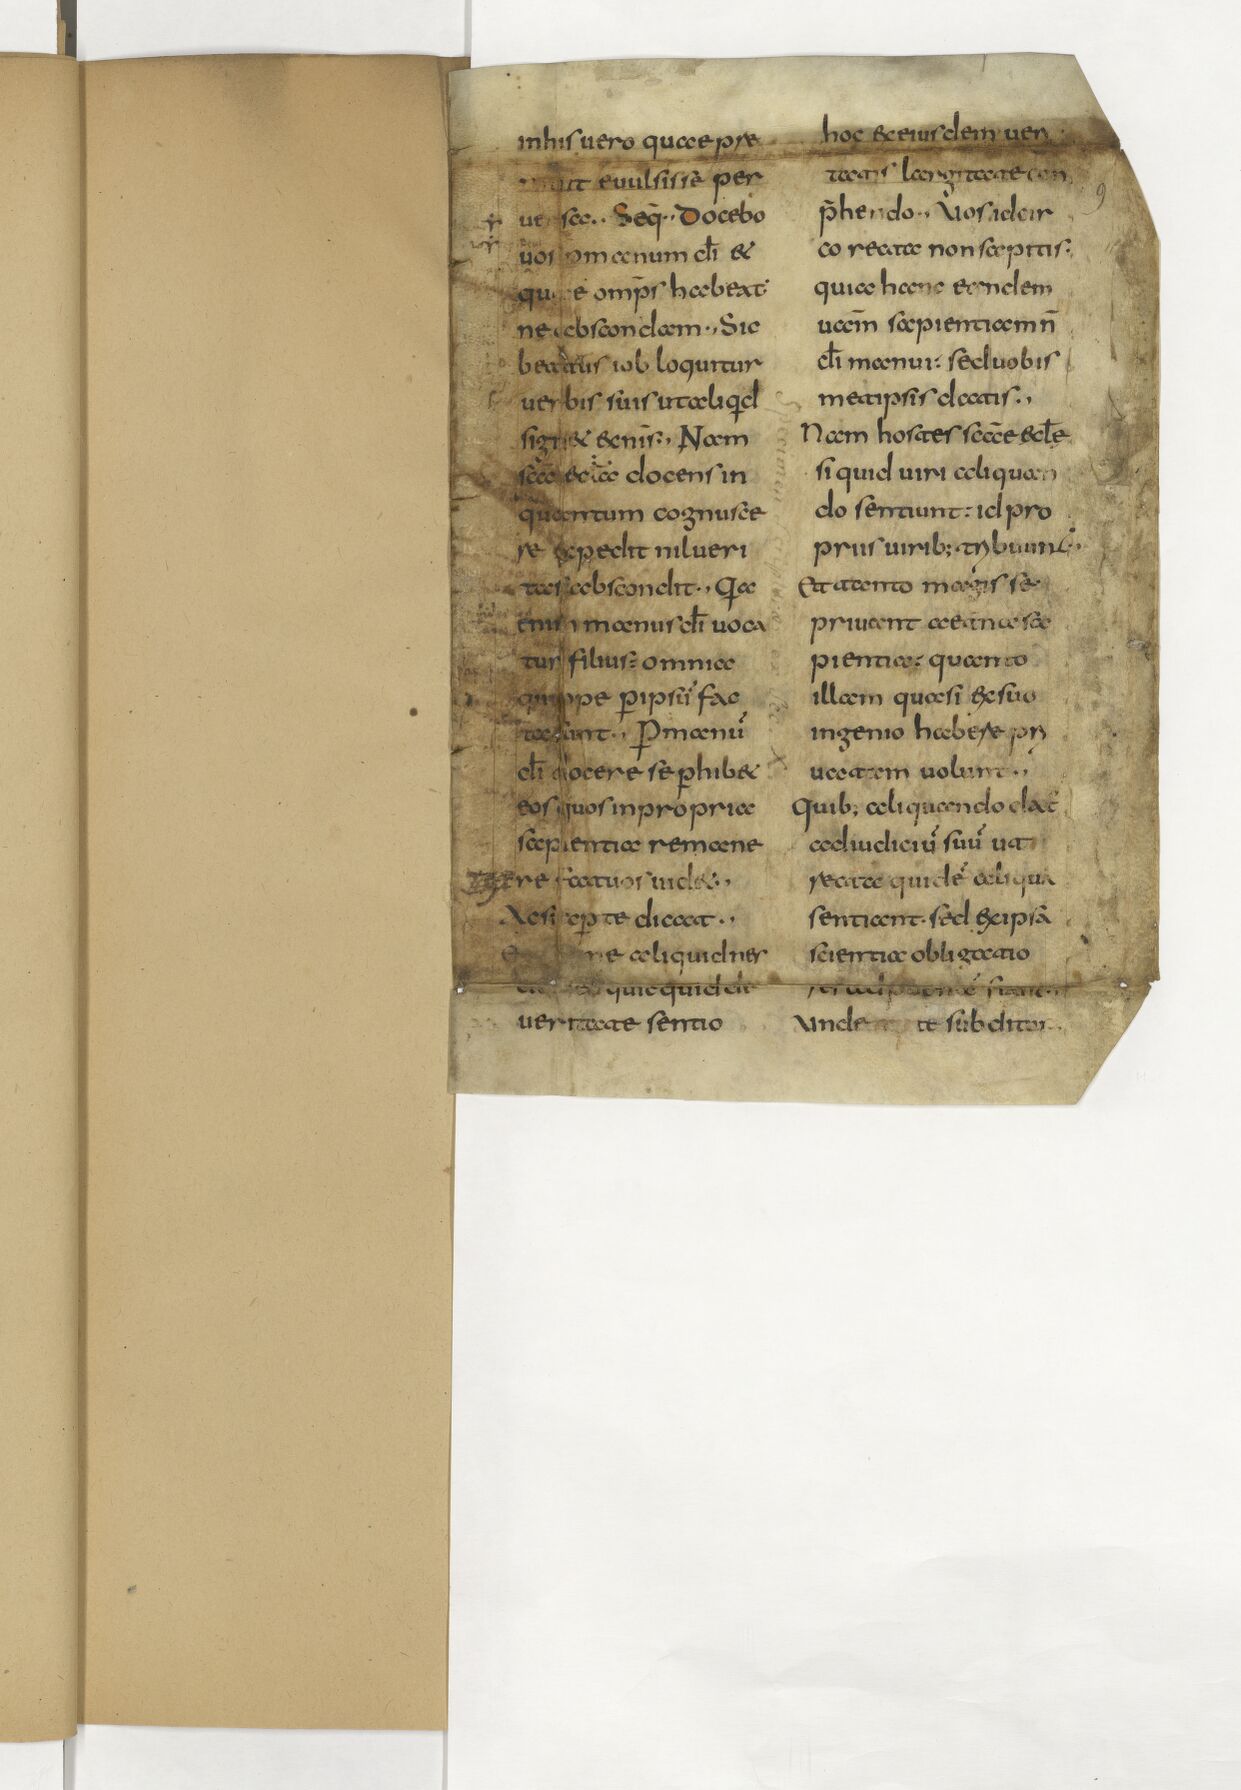 in his uero quae pre
evulsisse per
uersa·, Seq̄·, Docebo
uos p manum dī &
quae omp̄s habeat
ne abscondam·, Sic
beatus iob loquitur
uerbis suis ut aliqđ
sign& & nīs·, Nam
scā eccla docens in
quantum cognusce
re expedit nil ueri
tatis abscondit·, Qa
enim manus dī uoca
tur filius: omnia
quippe p̱ ipsū fac
ta sunt·, P̱ manū
dī docere se p̱hib&
eos quos in propria
sapientia remane
re fatuos uid&·,
Ac si ap̱te dicat·,
aliquid nes
quicquid de
ueritate sentio
hoc & eius dem ueri
tatis largitate con
p̄hendo·, Vos idcir
co recta non sapitis:
quia hanc eandem
ueām sapientiam n̄
dī manui: sed uobis
metipsis datis·,
Nam hostes scāe eccłe
si quid uiri aliquan
do sentiunt: id pro
priis uirib; tribuunt·,
Et tanto magis se
priuant aeterna sa
pientia: quanto
illam quasi ex suo
ingenio habere pri
uatam uolunt·,
Quib; aliquando dat
ad iudiciū suū ut
recta quidē aliqua
sentiant· sed ex ipsa
scientia obligatio
Vnde te subditur·,
9